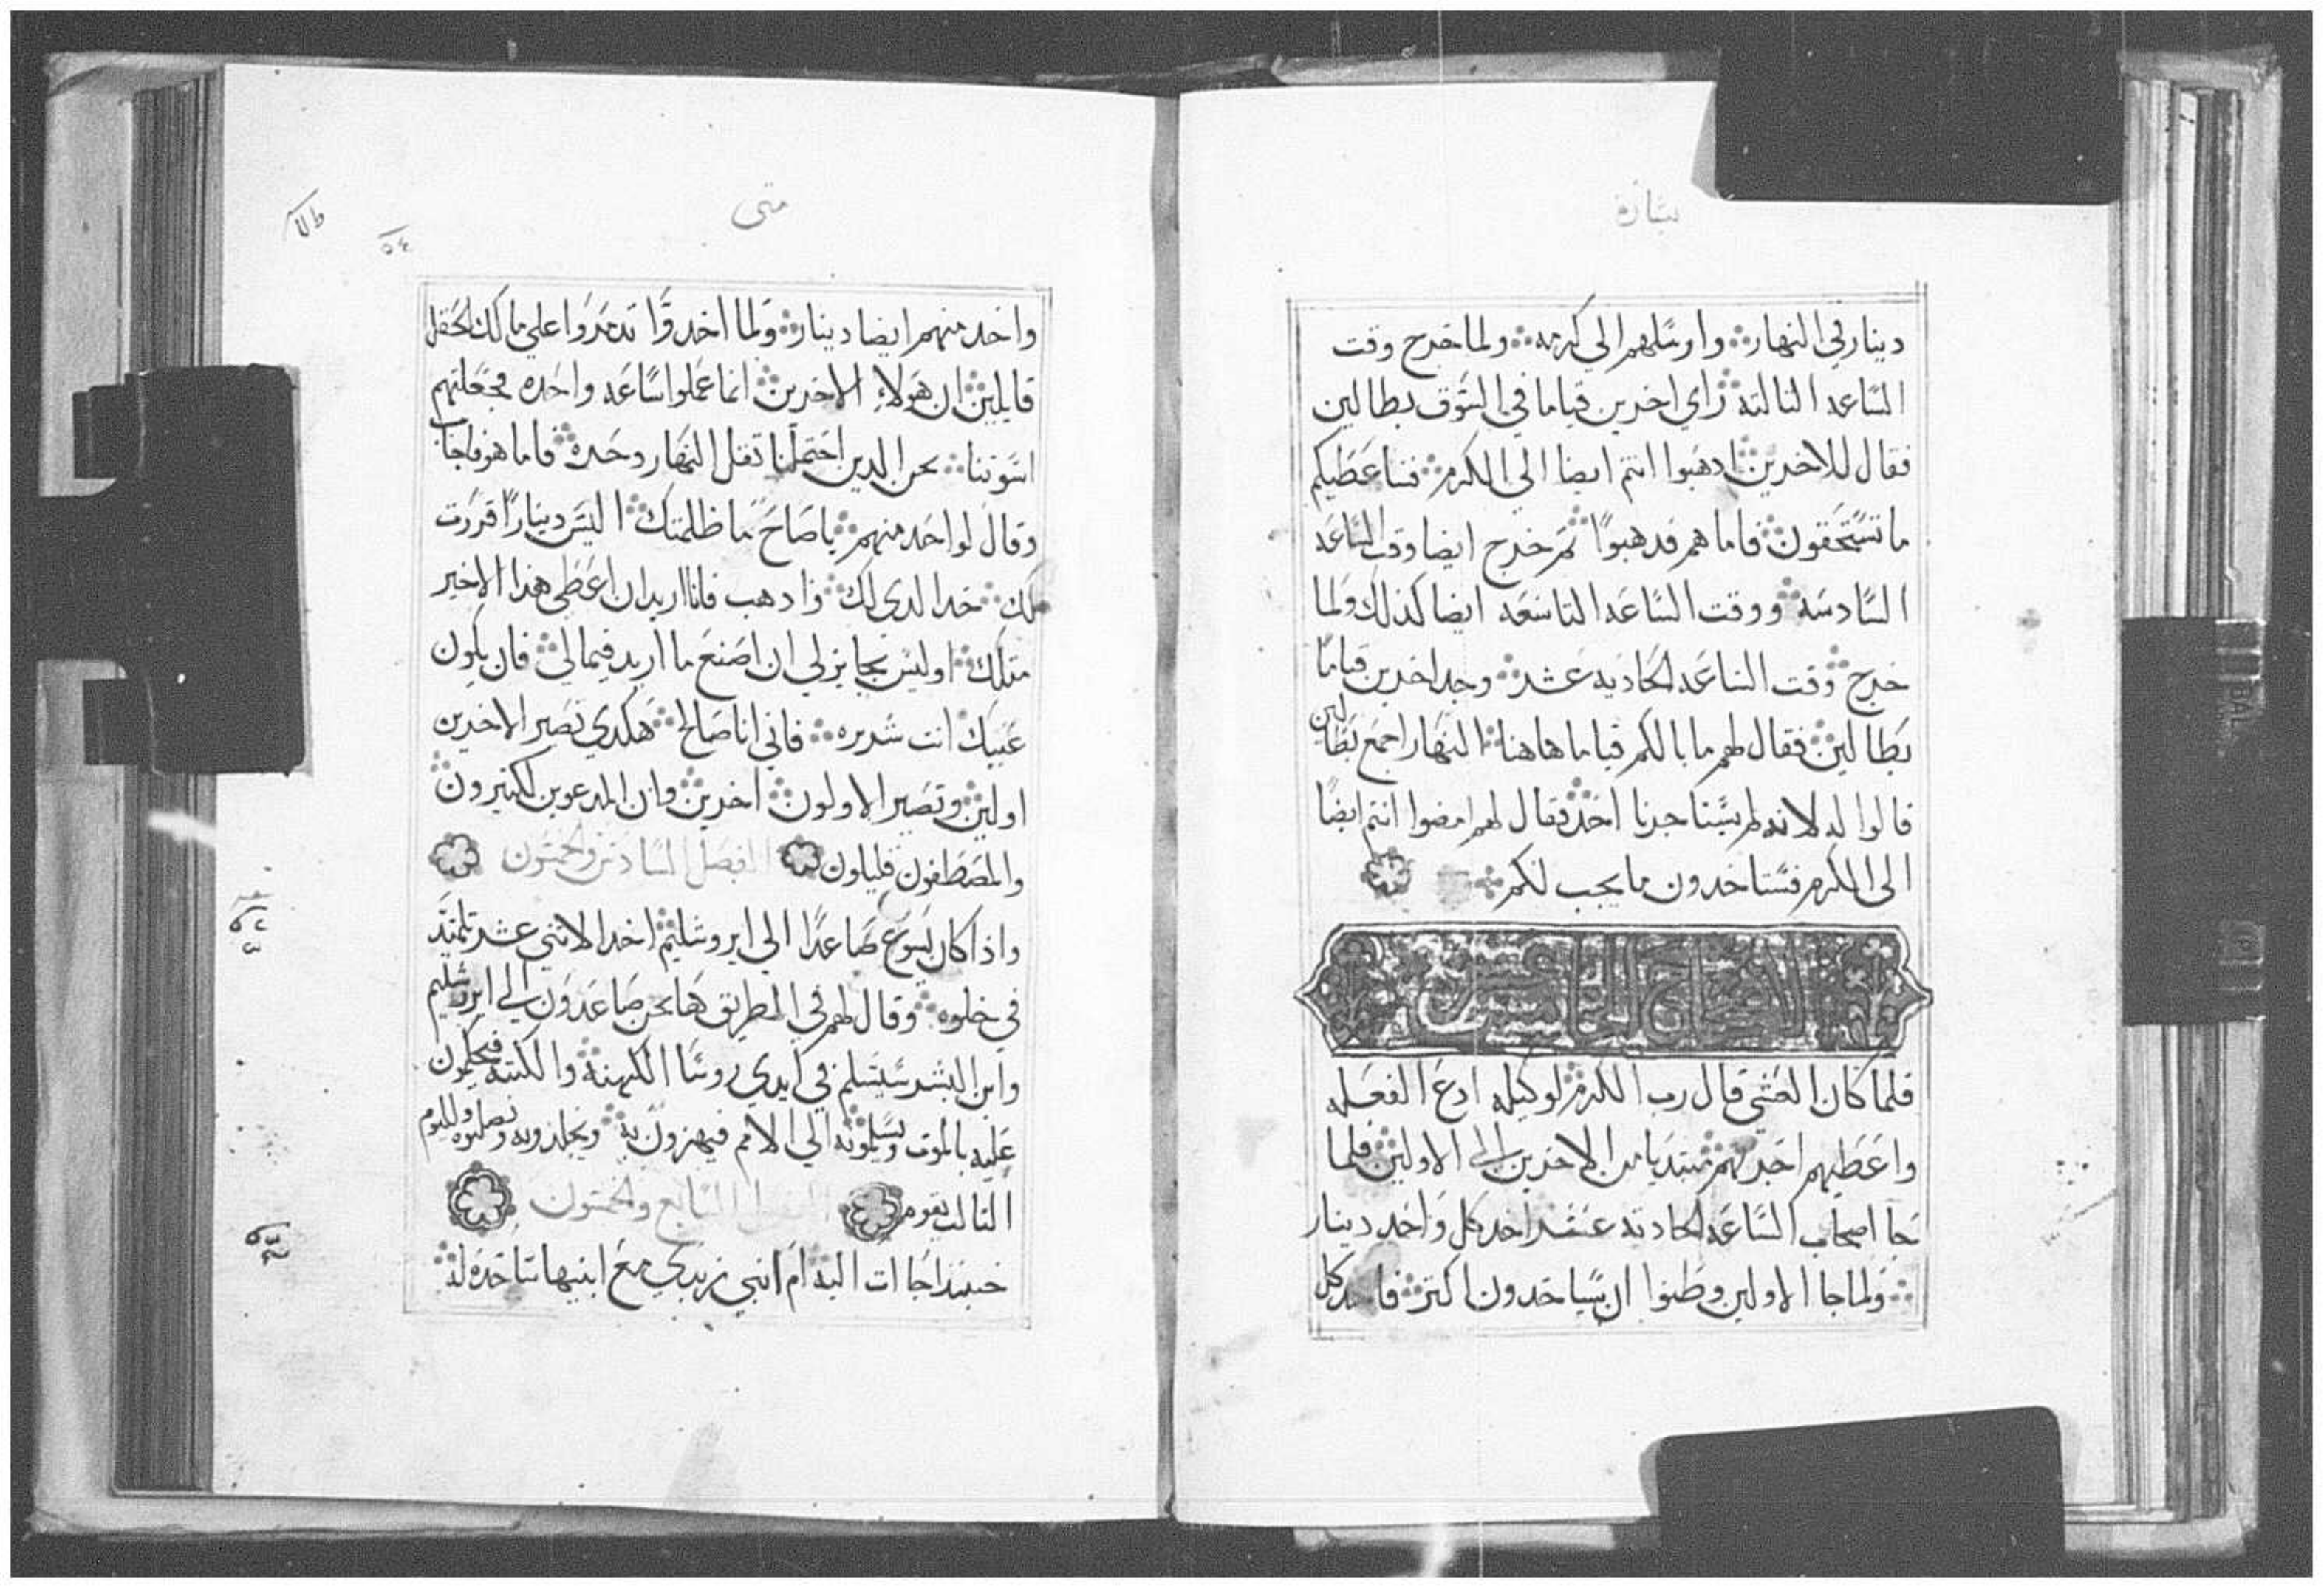 بشارة
دينار في النهار وارسلهم الي كرمه ولما خرج وقت
الساعه التالته راي اخرين قياما في السوق بطالين
فقال للاخرين ادهبوا انتم ايضا الي الكرم فساعطيكم
ما تستحقون فاما هم فدهبوا تم خرج ايضا وقت الساعه
السادسه ووقت الساعه التاسعه ايضا كذلك ولما
خرج وقت الساعه الحاديه عشر وجد اخرين قياما
بطالين فقال لهم ما بالكم قياما هاهنا النهار اجمع بطالين
قالوا له لانه لم يستاجرنا احد فقال لهم امضوا انتم ايضا
الي الكرم فستاخدون ما يجب لكم
الاصحاح الخامس
فلما كان العشي قال رب الكرم لوكيله ادع الفعله
واعطيهم اجرتهم مبتديا من الاخرين الي الاولين فلما
جا اصحاب الساعه الحاديه عشر اخد كل واحد دينار
ولما جا الاولين وظنوا ان سياخدون اكتر فاخد كل
متي
٥٤
واحد منهم ايضا دينار ولما اخدوا تدمروا علي مالك الحقل
قايلين ان هولاء الاخرين انما عملوا ساعه واحده فجعلتهم
اسوتنا نحن الدين احتملنا تقل النهار وحره فاما هو فاجاب
وقال لواحد منهم يا صاح ما ظلمتك اليس دينارا قررت
لك خد الدي لك وادهب فانا اريد ان اعطي هذا الاخير
متلك اوليس بجايز لي ان اصنع ما اريد فيما لي فان يكون
عينك انت شريره فاني انا صالح هكدي تصير الاخرين
اولين وتصير الاولون اخرين وان المدعوين لكتيرون
والمصطفون قليلون الفصل السادس والخمسون
واذا كان يسوع صاعدا الي ايروشليم اخد الاتني عشر تلميد
في خلوه وقال لهم في الطريق ها نحن صاعدون الي ايروشليم
وابن البشر سيسلم في ايدي روسا الكهنة والكتبه فيحكمون
عليه بالموت ويسلمونه الي الامم فيهزون به ويجلدونه ويصلبوه ولليوم
التالت يقوم الفصل السابع والخمسون
حينيذ اجاات اليه ام ابني زبدي مع ابنيها ساجده له